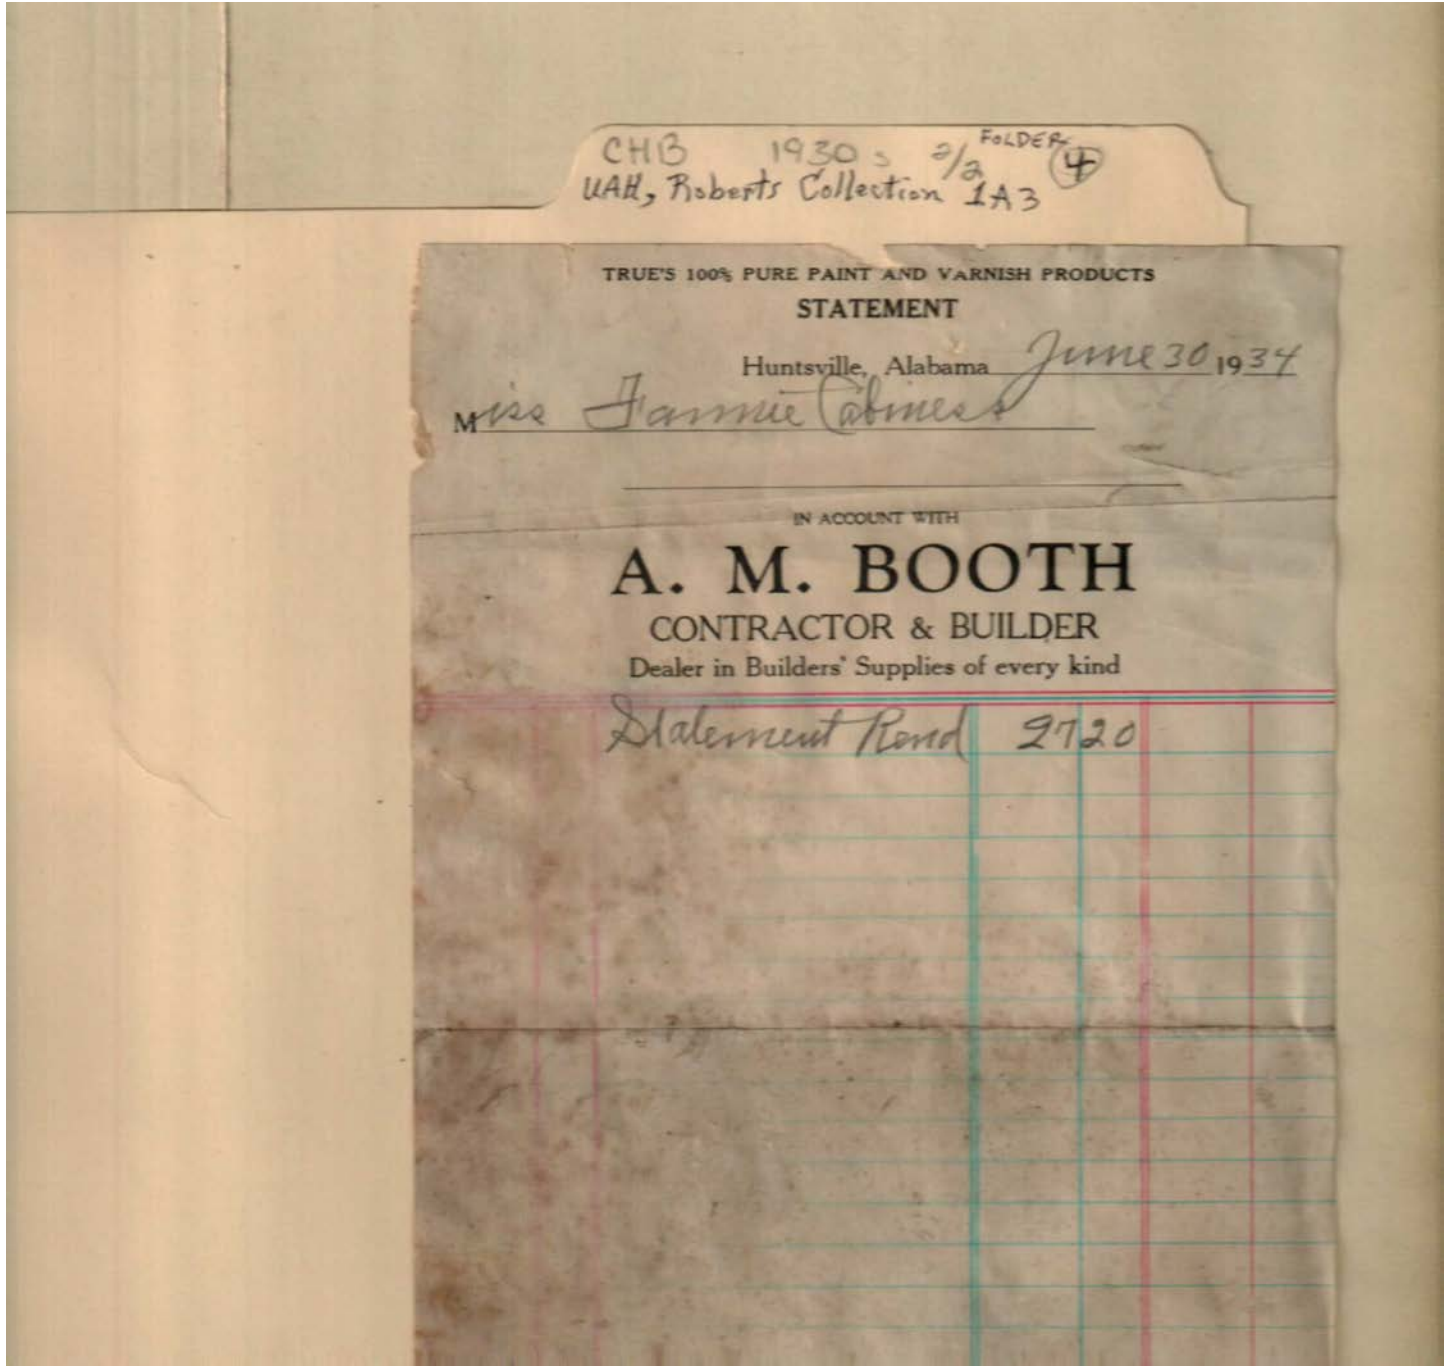 CHB 1930s 2/2 FOLDER 4
UAH, Roberts Collection 1A3
TRUE'S 100% PURE PAINT AND VARNISH PRODUCTS
STATEMENT
Huntsville, Alabama June 30 1934
Miss Fannie Cabiness
IN ACCOUNT WITH
A. M. BOOTH
CONTRACTOR & BUILDER
Dealer in Builders' Supplies of every kind
Statement Rend 2720